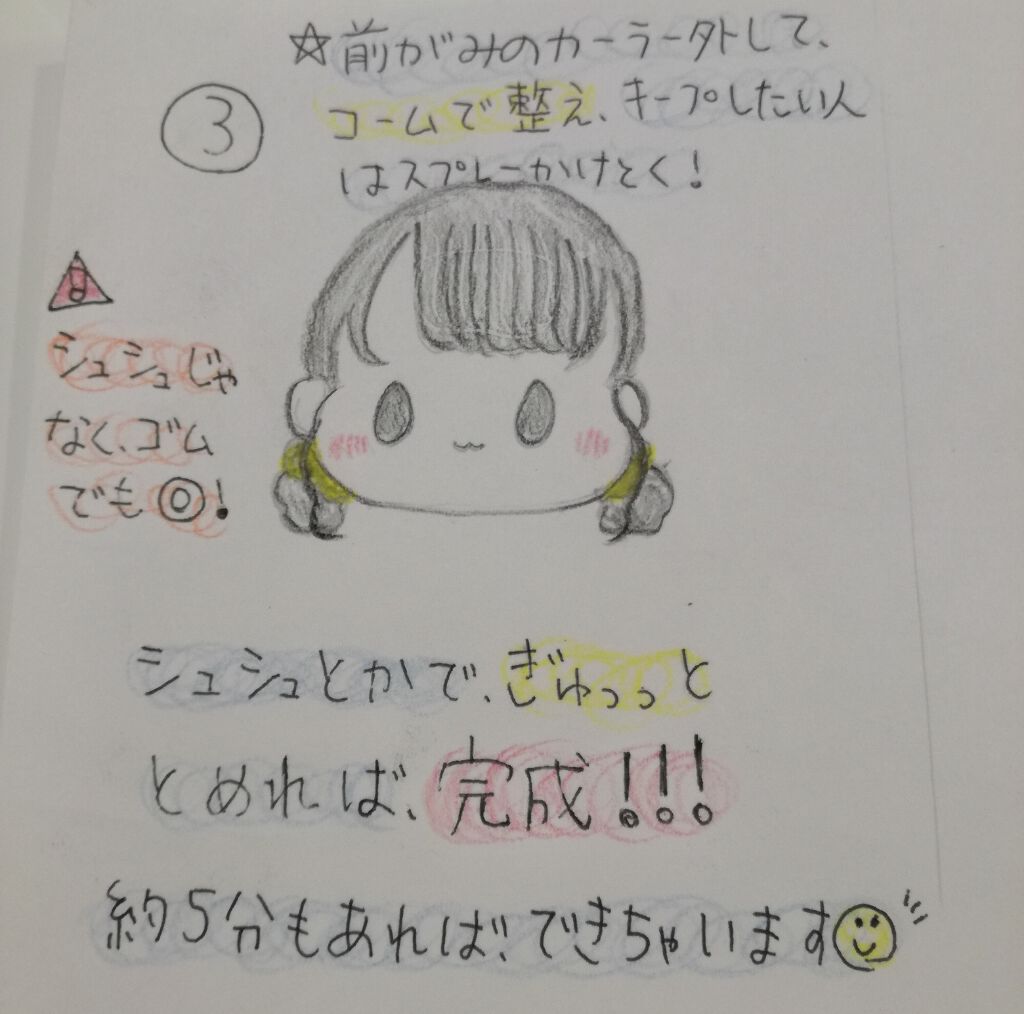 ③
☆前がみのカーラー外して、
コームで整え、キープしたい人
はスプレーかけとく!
シュシュじゃ
なく、ゴム
でも◎!
シュシュとかで、ぎゅっっと
とめれば、完成!!!
約5分もあれば、できちゃいます